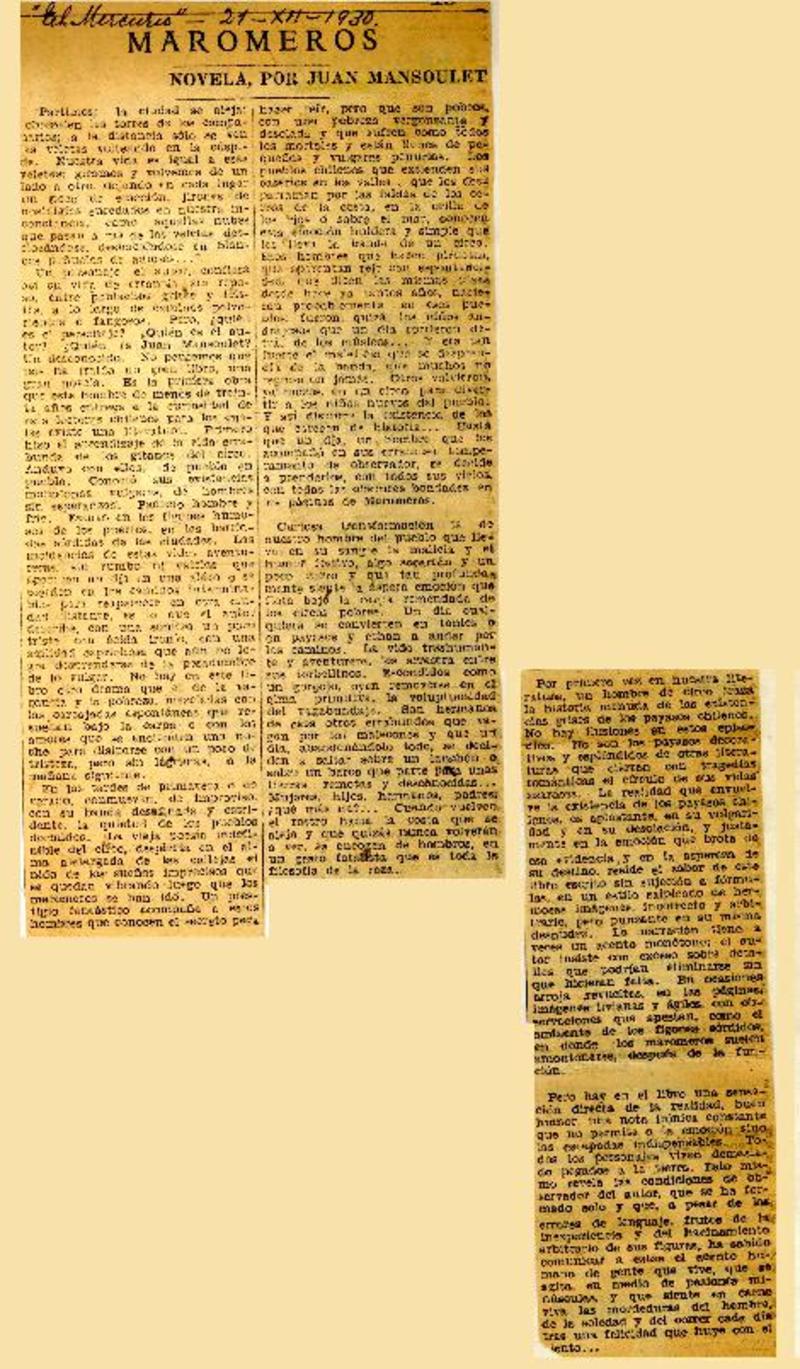 "El Mercurio" - 21-XII-1930.
MAROMEROS
NOVELA, POR JUAN MANSOULET
Partimos: la ciudad se aleja;
las torres de los campa-
narios; a la distancia sólo se ven
las veletas volteando en la cúspi-
de. Nuestra vida es igual a esas
veletas: giramos y volvemos de un
lado a otro, dejando en cada lugar
un poco de emoción, jirones de
en nuestra in-
constancia, como aquellas nubes
que pasan
Un personaje, el autor, confiesa
así su vida de errante, sin repo-
so, entre
a lo largo de caminos polvo-
rientos o fangosos. Pero, ¿quién
es el personaje? ¿Quién es el au-
tor? ¿Quién es Juan Mansoulet?
Un desconocido. No pensemos que
nos ha traído un gran libro, una
gran novela. Es la primera obra
que este hombre de menos de trein-
ta años entrega a la curiosidad de
los lectores chilenos
Primero
hizo el aprendizaje de la vida erra-
bunda de los gitanos del circo.
Anduvo con ellos, de pueblo en
pueblo. Conoció sus existencias
vulgares, de hombres
sin esperanzas. Padeció hambre y
frío.
de los puertos, en los barrio-
de las ciudades. Las
incidencias de estas vidas aventu-
reras, sin rumbo
en una aldea o se
en los caminos
para reaparecer en otra ciu-
dad distante, es lo que el autor
describe, con una sonrisa un poco
triste, con ácida ironía, con una
que aún no lo-
gra desprenderse de la pesadumbre
de lo vulgar. No hay en este li-
bro otro drama que el de la va-
gancia y la pobreza, mezcladas con
las carcajadas espontáneas que re-
suenan bajo la carpa o con los
amores que se encienden una no-
che para disiparse con un poco de
tristeza, pero sin lágrimas, a la
mañana siguiente.
En las tardes de primavera o de
verano, conmueven, de improviso,
con su banda desafinada y estri-
dente, la quietud de los pueblos
dormidos.
del circo, despierta en el al-
ma aletargada de las callejas el
nido de los sueños imprecisos que
se quedan vibrando luego que los
maromeros se han ido. Un pres-
tigio fantástico acompaña a estos
hombres que conocen el secreto para
hacer reír, pero que son pobres,
con una pobreza vergonzante y
desolada y que sufren como todos
los mortales y están llenos de pe-
queñas y vulgares penurias. Los
pueblos chilenos que extienden sus
caseríos en los valles, que los des-
parraman por las faldas de los ce-
rros de la costa, en la orilla de
los ríos o sobre el mar, conocen
esta emoción holdera y simple que
les lleva la banda de un circo.
Esos hombres que hacen piruetas,
que aparentan reír con espontanei-
dad, que dicen las mismas cosas
desde hace ya tantos años, nacie-
ron probablemente en esos pue-
blos, fueron, quizá, los niños an-
drajosos que un día corrieron de-
trás de los músicos... Y era tan
fuerte el maleficio que se despren-
día de la banda, que muchos no
regresaron jamás. Otros volvieron,
ya mozos, en un circo para diver-
tir a los niños nuevos del pueblo.
Y así discurre la existencia de los
que carecen de historia... Hasta
que un día, un hombre que los
acompañó en sus correrías, tempe-
ramento de observador, se decide
a prenderlos, con todos sus vicios,
con todas las obscuras bondades en
las páginas de Maromeros.
Curiosa transformación la de
nuestro hombre del pueblo que lle-
va en su sangre la malicia y el
humor festivo, algo socarrón y un
poco y que tan profunda-
mente siente la áspera emoción que
flota bajo la carpa remendada de
los circos pobres. Un día cual-
quiera se convierten en tonies o
en payasos y echan a andar por
los caminos. La vida trashuman-
te y aventurera, los arrastra entre
sus torbellinos. Escondidos como
un gorgojo, oyen removerse en el
alma primitiva, la voluptuosidad
del vagabundaje. Son hermanos
de esos otros errabundos que va-
gan por los malecones y que un
día, abandonándolo todo, se deci-
den a saltar sobre un lanchón o
sobre un barco que parte para unas
tierras remotas y desconocidas...
Mujeres, hijos, hermanos, padres;
¿qué más da?... Cuando vuelven
el rostro hacia la costa que se
aleja y que quizás nunca volverán
a ver, se encogen de hombros, en
un gesto fatalista que es toda la
filosofía de la raza.
Por primera vez en nuestra lite-
ratura, un hombre de circo traza
la historia menuda de las existen-
cias grises de los payasos chilenos.
No hay ilusiones en estos episo-
dios. No son los payasos decora-
tivos y espléndidos de otras litera-
turas que cierran con tragedias
románticas el círculo de sus vidas
La realidad que envuel-
ve la existencia de los payasos chi-
lenos, es aplastante, en su vulgari-
dad y en su desolación, y justa-
mente en la emoción que brota de
esa evidencia y en la aspereza de
su destino, reside el sabor de este
libro escrito sin sujeción a fórmu-
las, en un estilo salpicado de her-
mosas imágenes, incorrecto y arbi-
trario, pero punzante en su misma
desnudez. La narración tiene a
veces un acento monótono; el au-
tor insiste con exceso sobre deta-
lles que podrían eliminarse sin
que hicieran falta. En ocasiones
arroja revueltas, en las páginas,
imágenes livianas y ágiles, con ob-
servaciones que apestan, como el
ambiente de los figones sórdidos,
en donde los maromeros suelen
amontonarse, después de la fun-
ción.
Pero hay en el libro una sensa-
ción directa de la realidad, buen
humor, una nota irónica constante
que no permite a la emoción sino
las escapadas indispensables. To-
dos los personajes viven demasia-
do pegados a la tierra. Esto mis-
mo revela las condiciones de ob-
servador del autor, que se ha for-
mado solo y que, a pesar de los
errores de lenguaje, frutos de la
inexperiencia y del hacinamiento
arbitrario de sus figuras, ha sabido
comunicar a éstas el acento hu-
mano de gente que vive, que se
agita en medio de pasiones mi-
núsculas, y que siente en carne
viva las mordeduras del hambre,
de la soledad y del correr cada día
tras una felicidad que huye con el
viento...